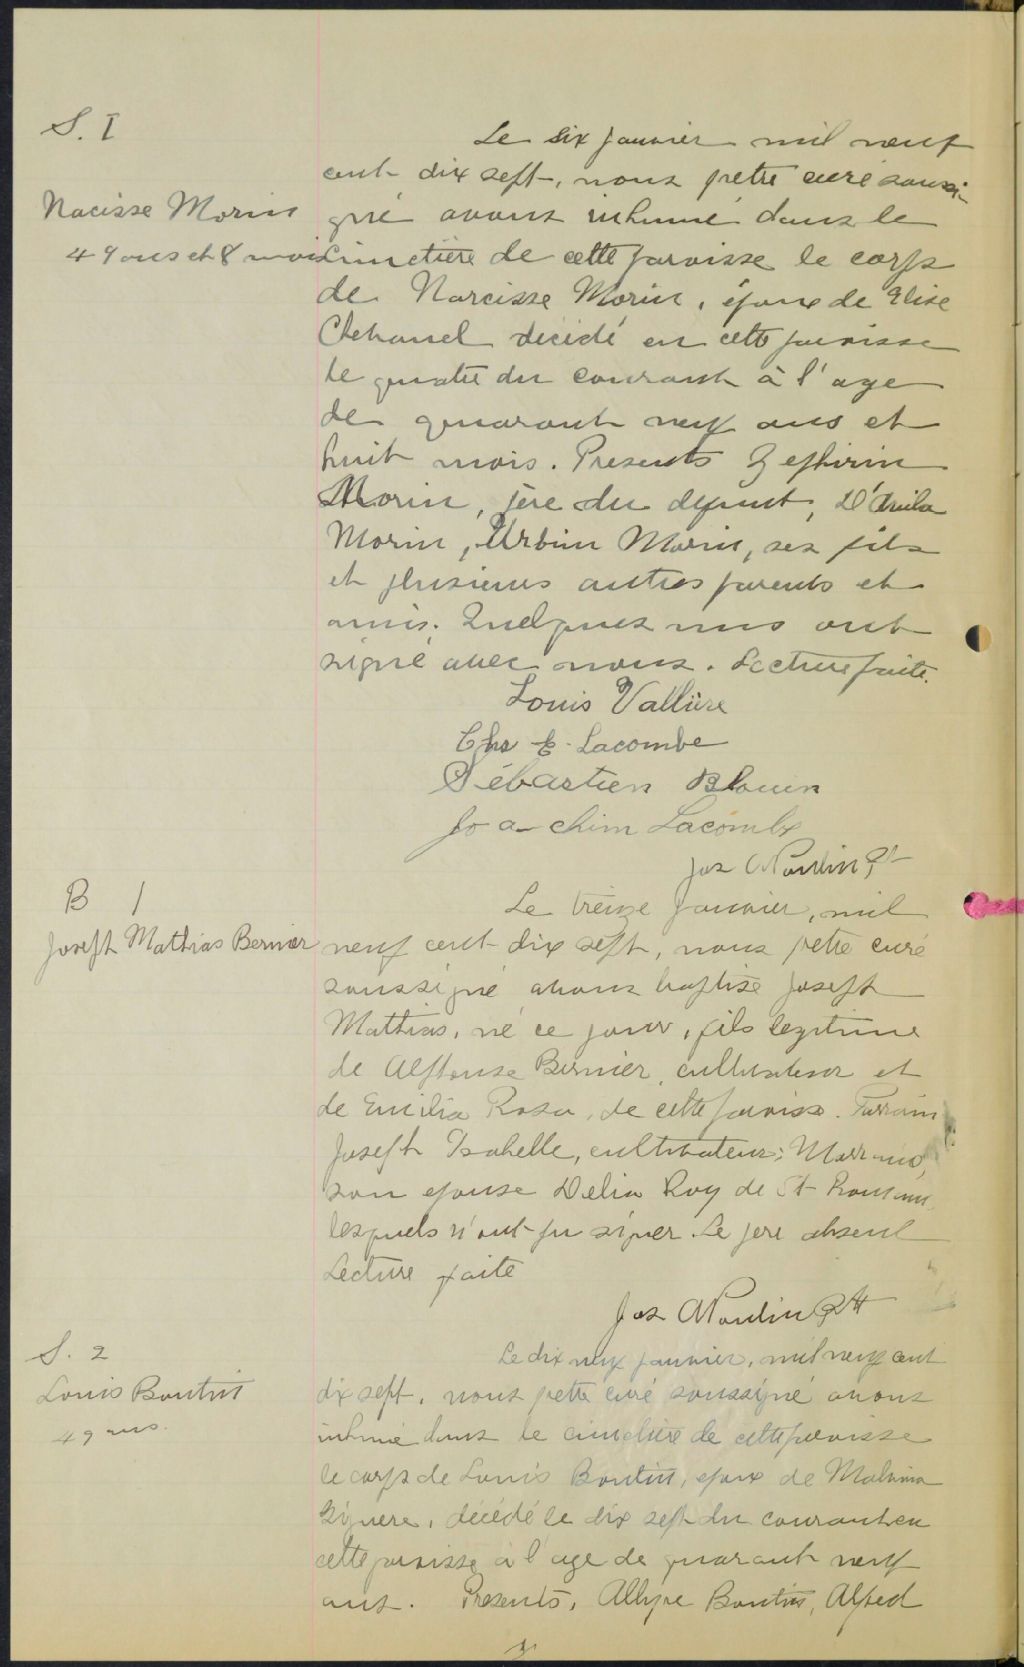 S. I
Nacisse Morin
49 ans et 8 mois
Le six janvier mil neuf
cent dix sept, nous pretre curé soussi-
gné avons inhumé dans le
cimetière de cette paroisse le corps
de Narcisse Morin, époux de Elise
décédé en cette paroisse
le quatre du courant à l'age
de quarant neuf ans et
huit mois. Presents Zephirin
Morin, père du defunt,
Morin, Urbin Morin, ses fils
et plusieurs autres parents et
amis. Quelques uns ont
signé avec nous. Lecture faite.
Louis Vallière
Chs E. Lacombe
Sébastien Blouin
Joachim Lacombe
Jos A Poulin Pt
B 1
Joseph Mathias Bernier
Le treize janvier, mil
neuf cent dix sept, nous petre curé
soussigné avons baptisé Joseph
Mathias, né ce jour, fils legitime
de Alphonse Bernier, cultivateur et
de Emilia Rosa, de cette paroisse. Parrain
Joseph Isabelle, cultivateur; Marraine,
son epouse Delia Roy de St Romain,
lesquels n'ont pu signer. Le pere absent
Lecture faite
Jos A Poulin Ptt
S. 2
Louis Boutin
49 ans.
Le dix neuf janvier, mil neuf cent
dix sept, nous petre curé soussigné avons
inhumé dans le cimetière de cette paroisse
le corps de Louis Boutin, epoux de Malvina
décédé le dix sept du courant en
cette paroisse à l'age de quarant neuf
ans. Presents, Allyre Boutin, Alfred